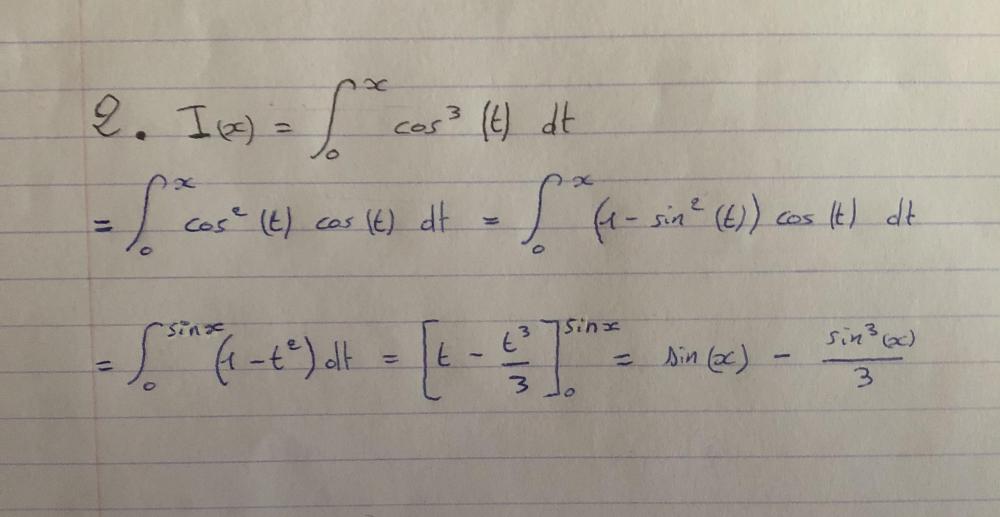 2. I(x) = ∫₀ˣ cos³ (t) dt
= ∫₀ˣ cos² (t) cos (t) dt = ∫₀ˣ (1 - sin² (t)) cos (t) dt
= ∫₀^{sin x} (1 - t²) dt = [t - t³/3]₀^{sin x} = sin (x) - sin³(x)/3